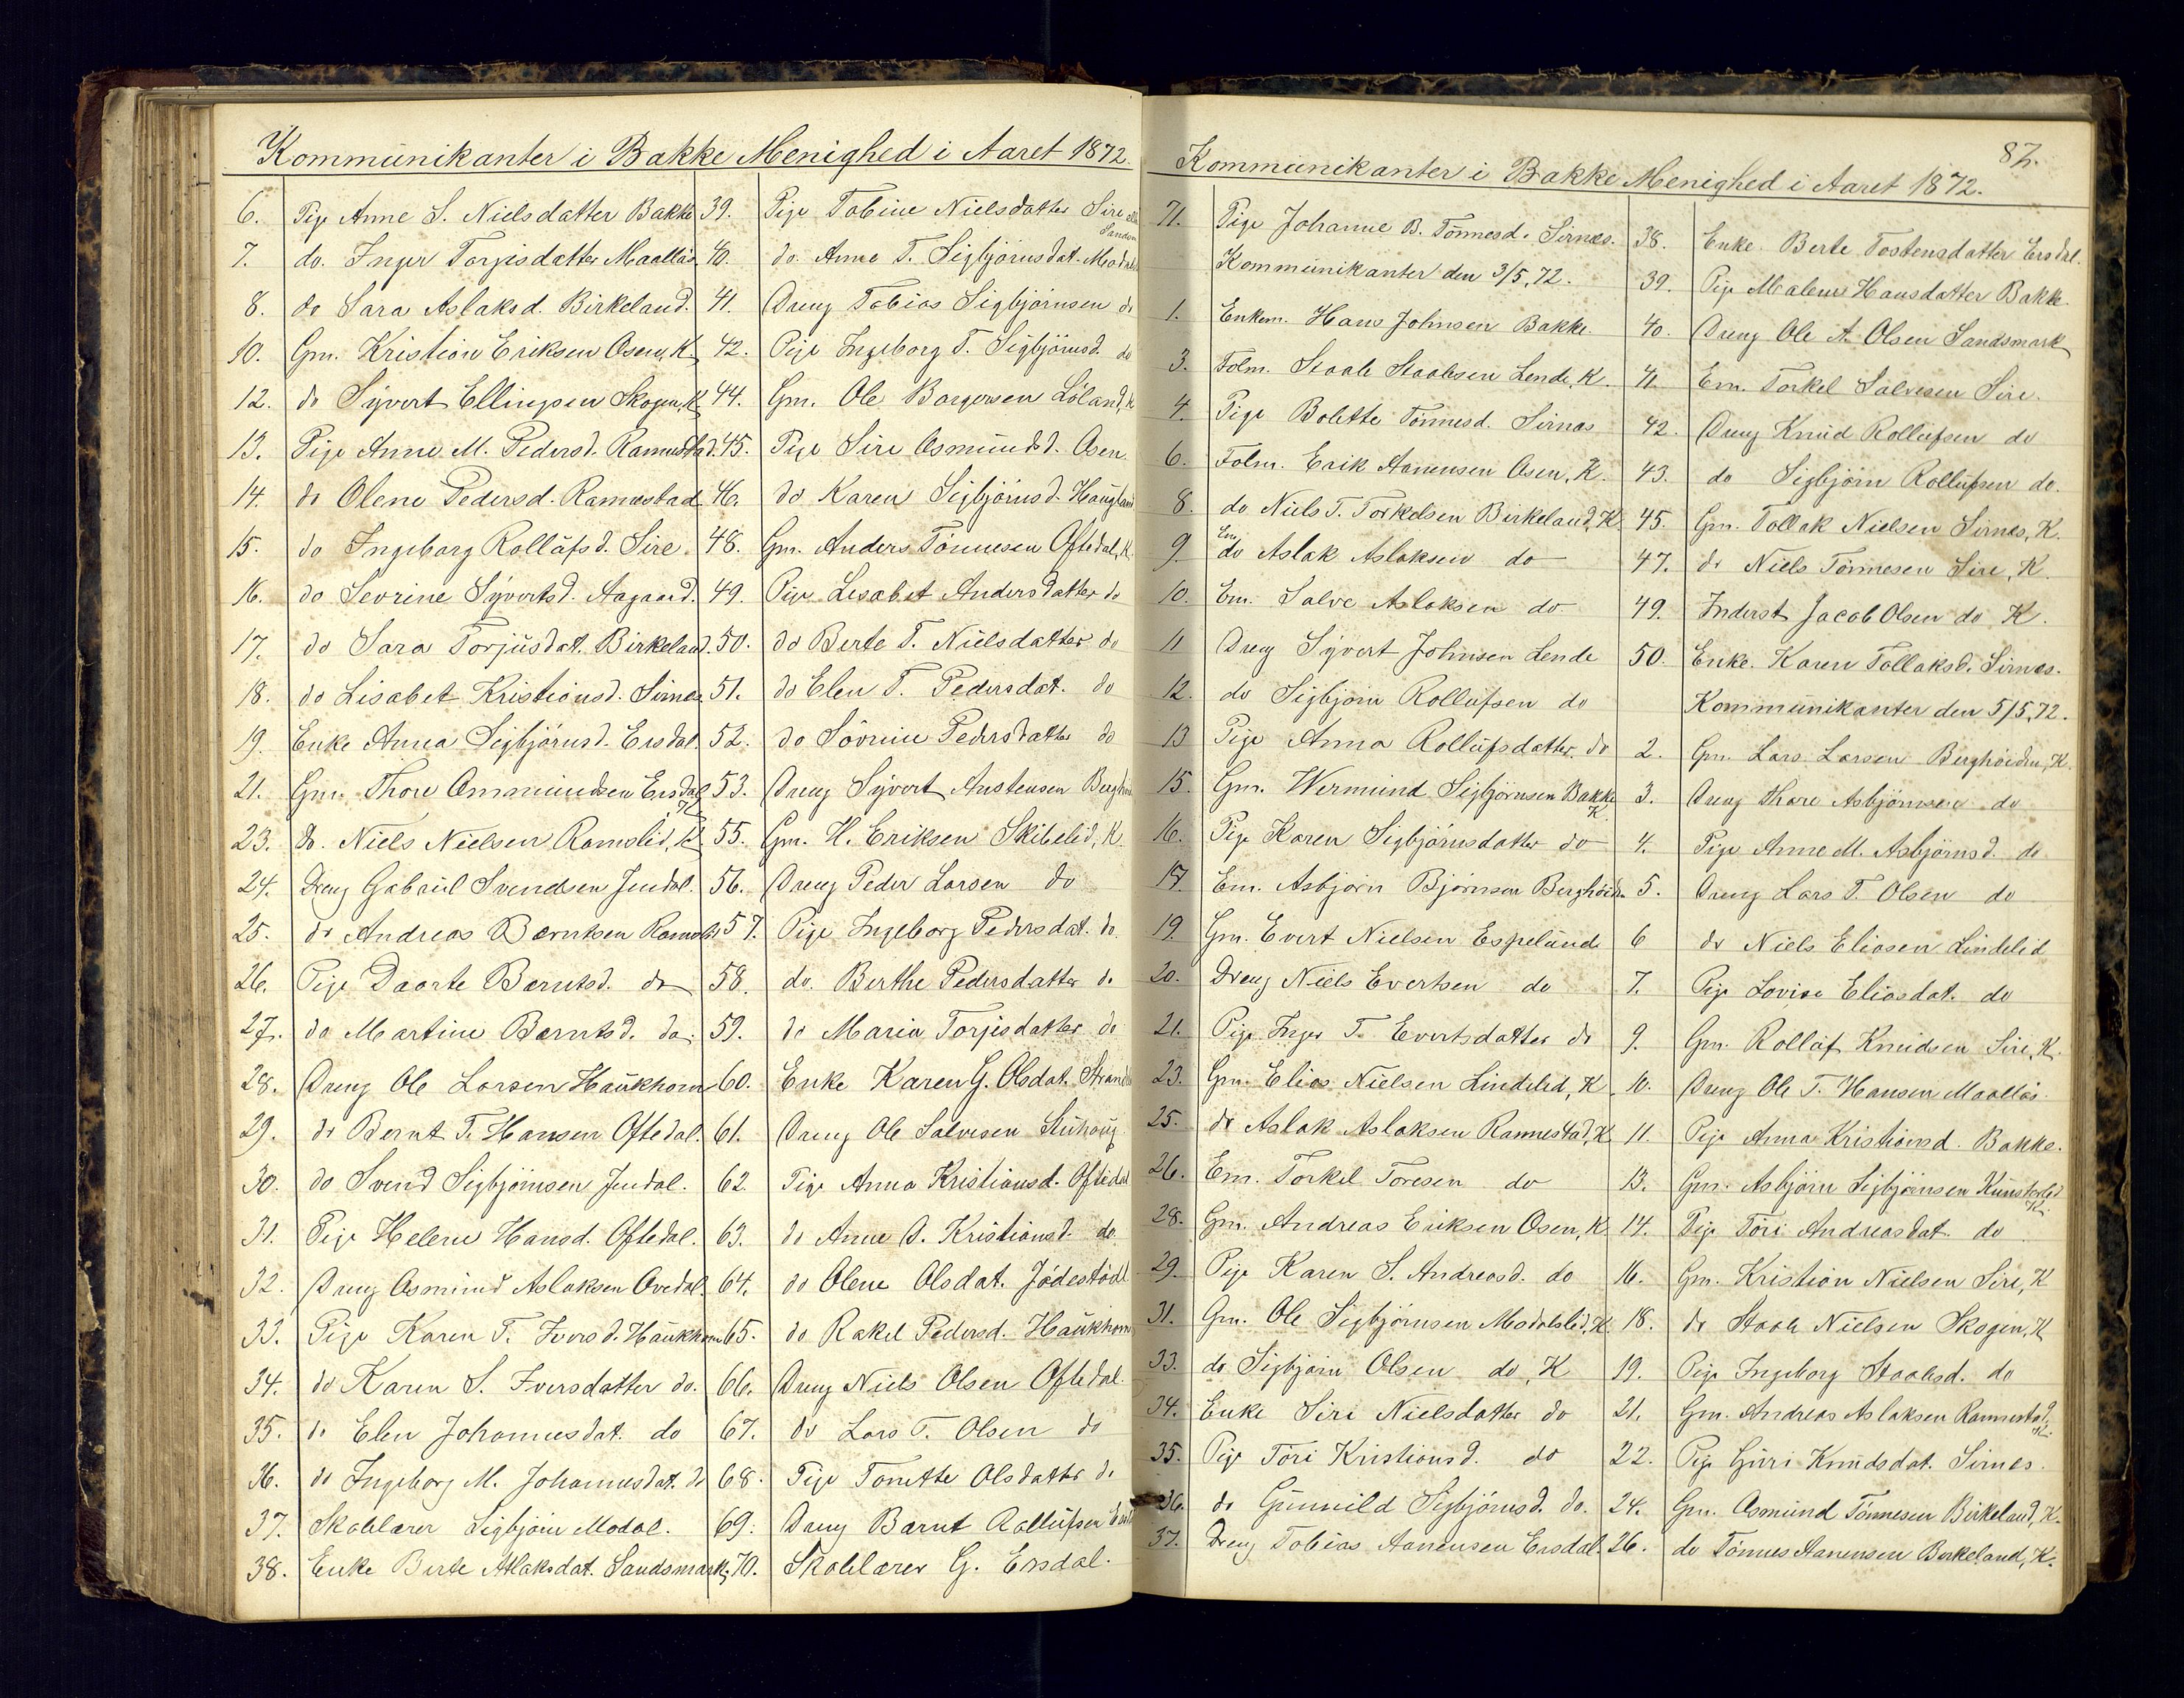 Kommunikanter i Bakke Menighed i Aaret 1872.
6. Pige Anne S. Nielsdatter Bakke
7. do. Inger Torjisdatter Maallås
8. do Sara Aslaksd. Birkeland.
10. Gm. Kristian Eriksen Osen, K
12. do Syvert Ellingsen Skogen, K
13. Pige Anne M. Pedersd. Ramnestad.
14. do Olene Pedersd. Ramnestad
15. do Ingeborg Rollufsd. Sire.
16. do Sevrine Syvertsd. Aagaard.
17. do Sara Torjusdat. Birkeland.
18. do Lisabet Kristiansd. Sirnes.
19. Enke Anna Sigbjörnsd. Ersdal.
21. Gm. Thore Ommundsen Ersdal, K
23. do. Niels Nielsen Ramslid, K
24. Dreng Gabriel Svendsen Jendal.
25. do Andreas Berntsen
26. Pige Daarte Berntsd. do
27. do Martine Berntsd. do.
28. Dreng Ole Larsen Haukhom
29. do Bernt T. Hansen Oftedal.
30. do Svend Sigbjörnsen Jendal.
31. Pige Helene Hansd. Oftedal.
32. Dreng Osmund Aslaksen Ovedal.
33. Pige Karen T. Iversd. Haukhom
34. do Karen S. Iversdatter do.
35. do Elen Johannesdat. do
36. do Ingeborg M. Johannesdat. do
37. Skolelærer Sigbjörn Modal.
38. Enke Berte Atlaksdat. Sandsmark,
39. Pige Tobine Nielsdatter Sire
40. do. Anne T. Sigbjörnsdat.
41. Dreng Tobias Sigbjörnsen do
42. Pige Ingeborg T. Sigbjörnsd. do
44. Gm. Ole Borgersen Löland, K
45. Pige Sire Osmundsd. Osen.
46. do Karen Sigbjörnsd. Haugland
48. Gm. Anders Tönnesen Oftedal, K.
49. Pige Lisabet Andersdatter do
50. do Berte T. Nielsdatter do
51. do Elen T. Pedersdat. do
52. do Sövrine Pedersdatter do
53. Dreng Syvert Austensen
55. Gm. H. Eriksen Skibelid, K.
56. Dreng Peder Larsen do
57. Pige Ingeborg Pedersdat. do
58. do. Berthe Pedersdatter do
59. do Maria Torjisdatter do
60. Enke Karen G. Olsdat.
61. Dreng Ole Salvesen Stuhaug.
62. Pige Anna Kristiansd. Oftedal
63. do Anne A. Kristiansd. do
64. do Olene Olsdat. Jödestödl
65. do Rakel Pedersd. Haukhom
66. Dreng Niels Olsen Oftedal.
67. do Lars T. Olsen do
68. Pige Tonette Olsdatter do
69. Dreng Bernt Rollufsen
70. Skolelærer G. Ersdal.
87.
Kommunikanter i Bakke Menighed i Aaret 1872.
71. Pige Johanne B. Tönnesd. Sirnes.
Kommunikanter den 3/5, 72.
1. Enkem. Hans Johnsen Bakke.
3. Folm. Staale Staalesen Lende, K.
4. Pige Bolette Tönnesd. Sirnes
6. Folm. Erik Aanensen Osen, K.
8. do Niels T. Torkelsen Birkeland, K
9. Em do Aslak Aslaksen do
10. Em. Salve Aslaksen do
11 Dreng Syvert Johnsen Lende
12. do Sigbjörn Rollufsen do
13 Pige Anna Rollufsdatter. do
15. Gm. Wermund Sigbjörnsen Bakke K.
16. Pige Karen Sigbjörnsdatter do
17. Em. Asbjörn Björnsen Berghöiden
19. Gm. Evert Nielsen Espelund
20. Dreng Niels Evertsen do
21. Pige Inger T. Evertsdatter do
23. Gm. Elias Nielsen Lindelid, K
25. do Aslak Aslaksen Ramnestad, K
26. Em. Torkel Toresen do
28. Gm. Andreas Eriksen Osen, K
29. Pige Karen S. Andreasd. do
31. Gm. Ole Sigbjörnsen Modalslid, K
33. do. Sigbjörn Olsen do, K
34. Enke Siri Nielsdatter do
35. Pige Töri Kristiansd. do
36. do Gunnild Sigbjörnsd. do.
37. Dreng Tobias Aanensen Ersdal.
38. Enke Berte Tostensdatter Ersdal.
39. Pige Malene Hansdatter Bakke.
40. Dreng Ole A. Olsen Sandsmark
41. Em. Torkel Salvesen Sire.
42. Dreng Knud Rollufsen do
43. do Sigbjörn Rollufsen do.
45. Gm. Tollak Nielsen Sirnes, K.
47. do Niels Tönnesen Sire, K.
49. Inderst Jacob Olsen do K.
50. Enke. Karen Tollaksd. Sirnes.
Kommunikanter den 5/5, 72.
2. Gm. Lars Larsen Berghöiden, K.
3. Dreng Thore Asbjörnsen do
4. Pige Anne M. Asbjörnsd. do
5. Dreng Lars T. Olsen do
6 do Niels Eliasen Lindelid
7. Pige Lovise Eliasdat. do
9. Gm. Rolluf Knudsen Sire, K.
10. Dreng Ole T. Hansen Maallås.
11. Pige Anna Kristiansd. Bakke.
13. Gm. Asbjörn Sigbjörnsen K.
14. Pige Töri Andreasdat. do
16. Gm. Kristian Nielsen Sire, K
18. do Staale Nielsen Skogen, K
19. Pige Ingeborg Staalesd. do
21. Gm. Andreas Aslaksen Ramnestad, K.
22. Pige Guri Knudsdat. Sirnes.
24. Gm. Osmund Tönnesen Birkeland, K.
26. do Tönnes Aanensen Birkeland, K.